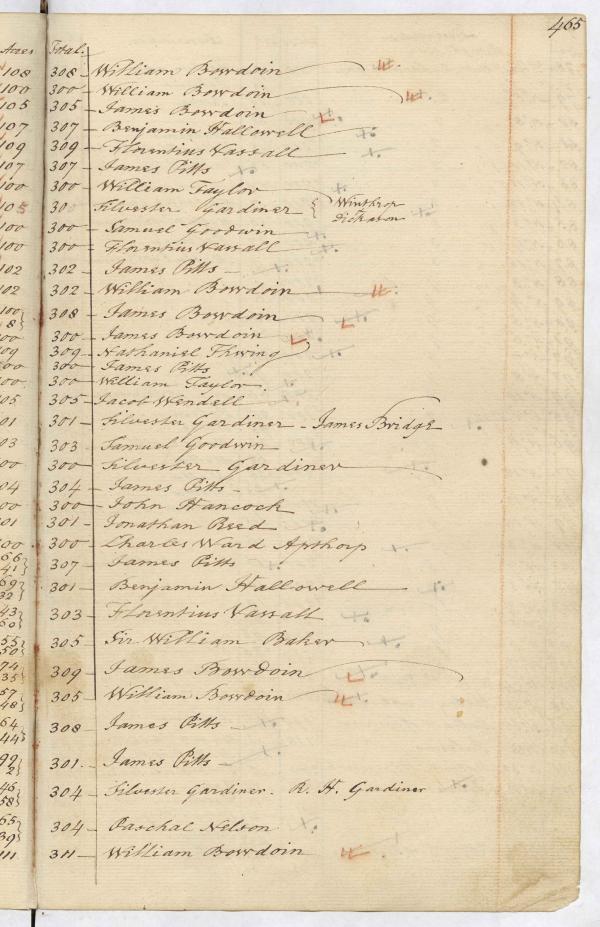 465
Acres Total.
108 308 - William Bowdoin
100 300 - William Bowdoin
105 305 - James Bowdoin
107 307 - Benjamin Hallowell
109 309 - Florentius Vassall
107 307 - James Pitts
100 300 - William Taylor
105 30 Silvester Gardiner { Winthrop
Dickason
100 300 - Samuel Goodwin
100 300 - Florentius Vassall
102 302 - James Pitts -
102 302 - William Bowdoin
100} 308 - James Bowdoin
8}
00 300 - James Bowdoin
09 309 - Nathaniel Thwing
00 300 - James Pitts
00 300 - William Taylor.
05 305 - Jacob Wendell
01 301 - Silvester Gardiner - James Bridge
03 303 - Samuel Goodwin
00 300 Silvester Gardiner
04 304 - James Pitts -
00 300 - John Hancock
01 301 - Jonathan Reed
00 300 - Charles Ward Apthorp
66}
41} 307 - James Pitts
69}
32} 301 - Benjamin Hallowell
43}
60} 303 - Florentius Vassall
55}
50} 305 - Sir William Baker
74}
35} 309 - James Bowdoin
57}
48} 305 - William Bowdoin
64
44} 308 - James Pitts -
99}
2} 301 - James Pitts -
46}
58} 304 - Silvester Gardiner. R. H. Gardiner
65}
39} 304 - Paschal Nelson
111 311 - William Bowdoin